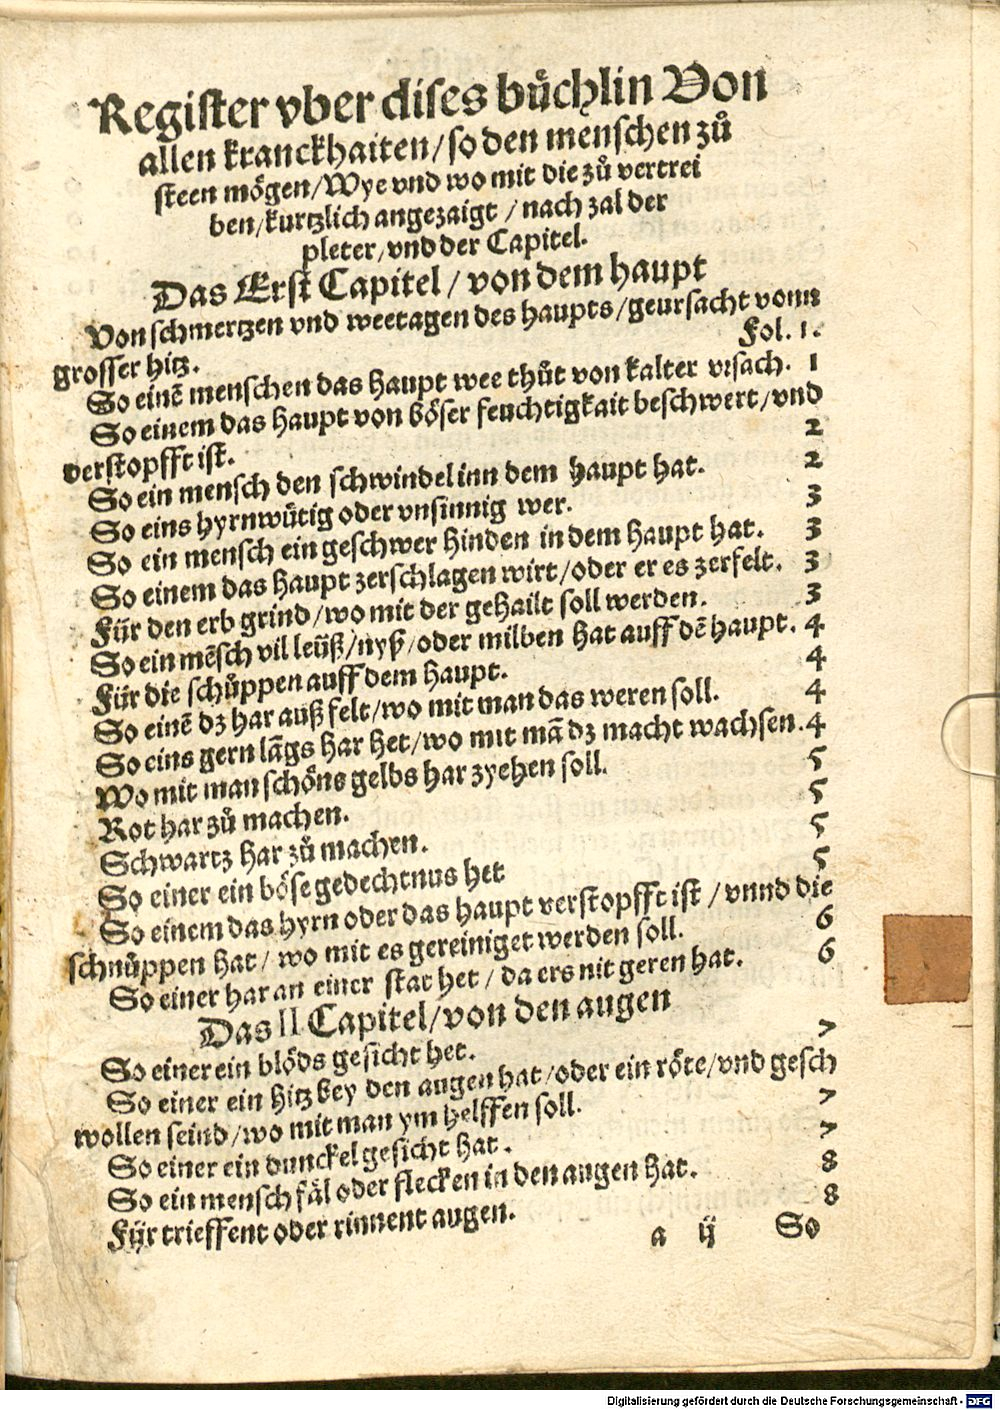 Register vber dises bůchlin Von
allen kranckhaiten/so den menschen zů
steen mögen/Wye vnd wo mit die zů vertrei
ben/kurtzlich angezaigt / nach zal der
pleter/vnd der Capitel.
Das Erst Capitel / von dem haupt
Von schmertzen vnd weetagen des haupts/geursacht vonn
grosser hitz. Fol. 1.
So einē menschen das haupt wee thůt von kalter vrsach. 1
So einem das haupt von böser feuchtigkait beschwert/vnd
verstopfft ist. 2
So ein mensch den schwindel inn dem haupt hat. 2
So eins hyrnwütig oder vnsinnig wer. 3
So ein mensch ein geschwer hinden in dem haupt hat. 3
So einem das haupt zerschlagen wirt/oder er es zerfelt. 3
Für den erb grind/wo mit der gehailt soll werden. 3
So ein mēsch vil leüß/nyß/oder milben hat auff dē haupt. 4
Für die schüppen auff dem haupt. 4
So einē dz har auß felt/wo mit man das weren soll. 4
So eins gern lāgs har het/wo mit mā dz macht wachsen. 4
Wo mit man schöns gelbs har zyehen soll. 5
Rot har zů machen. 5
Schwartz har zů machen. 5
So einer ein böse gedechtnus het 5
So einem das hyrn oder das haupt verstopfft ist / vnnd die
schnüppen hat/ wo mit es gereiniget werden soll. 6
So einer har an einer stat het / da ers nit geren hat. 6
Das II Capitel/von den augen
So einer ein blöds gesicht het. 7
So einer ein hitz bey den augen hat/oder ein röte/vnd gesch
wollen seind/wo mit man ym helffen soll. 7
So einer ein dunckel gesicht hat. 7
So ein mensch fäl oder flecken in den augen hat. 8
Für trieffent oder rinnent augen. 8
a ij So
Digitalisierung gefördert durch die Deutsche Forschungsgemeinschaft - DFG